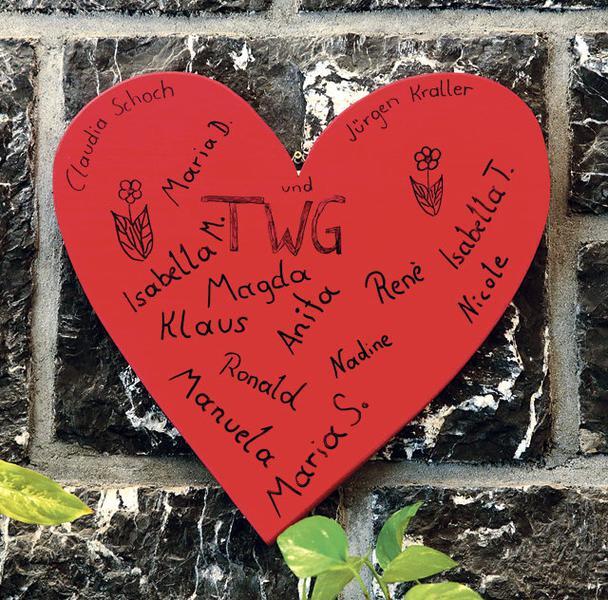 Claudia Schoch
Jürgen Kraller
Maria D.
und
TWG
Isabella M.
Isabella T.
Magda
Renè
Nicole
Klaus
Anita
Ronald
Nadine
Manuela
Maria S.